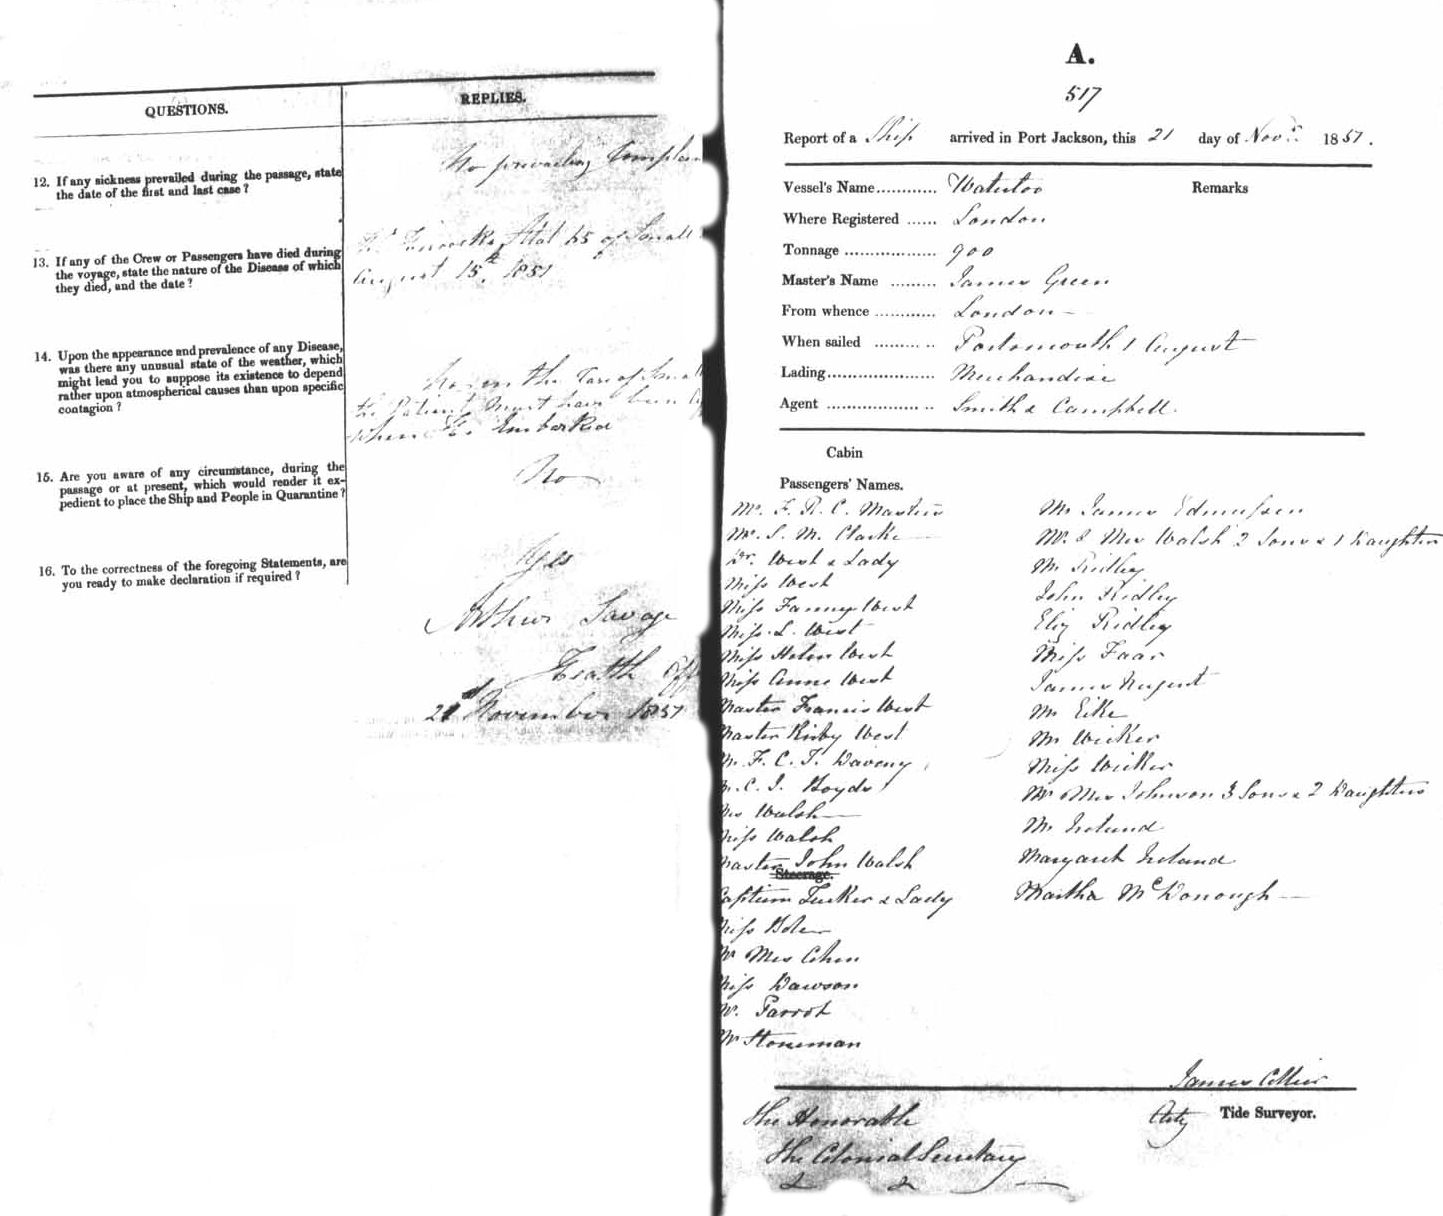 QUESTIONS.
REPLIES.
12. If any sickness prevailed during the passage, state
the date of the first and last case ?
No prevailing
13. If any of the Crew or Passengers have died during
the voyage, state the nature of the Disease of which
they died, and the date ?
25 of Small
August 15th, 1851
14. Upon the appearance and prevalence of any Disease,
was there any unusual state of the weather, which
might lead you to suppose its existence to depend
rather upon atmospherical causes than upon specific
contagion ?
in the Case of
the Patient must have been
when He Embarked
15. Are you aware of any circumstance, during the
passage or at present, which would render it ex-
pedient to place the Ship and People in Quarantine ?
No
16. To the correctness of the foregoing Statements, are
you ready to make declaration if required ?
Yes
Arthur Savage
Health Off
21st November 1851
A.
517
Report of a Ship arrived in Port Jackson, this 21 day of Novr. 1851.
Vessel's Name............ Waterloo Remarks
Where Registered ...... London
Tonnage .................. 900
Master's Name ......... James Green
From whence ............ London
When sailed ......... .. Portsmouth 1 August
Lading..................... Merchandise
Agent .................. .. Smith & Campbell.
Cabin
Passengers' Names.
Mr. F. R. C. Masters
Mr. S. M. Clarke
Dr. West & Lady
Miss West
Miss Fanny West
Miss L. West
Miss Helen West
Miss Anne West
Master Francis West
Master Kirby West
F. C. T.
C. J.
Walsh
Miss Walsh
Master John Walsh
Steerage.
Captain Tucker & Lady
Miss
Mr Mrs Cohen
Miss Dawson
Parrot
Mr Stoneman
Mr James
Mr. & Mrs Walsh 2 Sons & 1 Daughter
Mr Ridley
John Ridley
Eliz Ridley
Miss Faar
James Nugent
Mr Eike
Mr Wicker
Miss Wicker
Mr Mrs Johnson 3 Sons & 2 Daughters
Mr Ireland
Margaret Ireland
Martha McDonough
James Collier
Actg Tide Surveyor.
The Honorable
The Colonial Secretary
& &